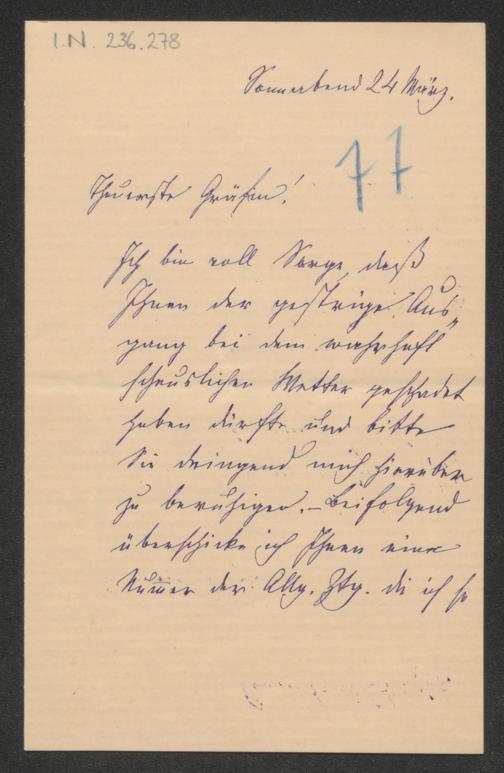 I.N. 236.278
Sonnabend 24 März.
77
Theuerste Gräfin!
Ich bin voll Sorge, daß
Ihnen der gestrige Aus-
gang bei dem wahrhaft
scheuslichen Wetter geschadet
haben dürfte und bitte
Sie dringend mich hierüber
zu beruhigen. – Beifolgend
überschicke ich Ihnen eine
Numer der Allg. Ztg. die ich so